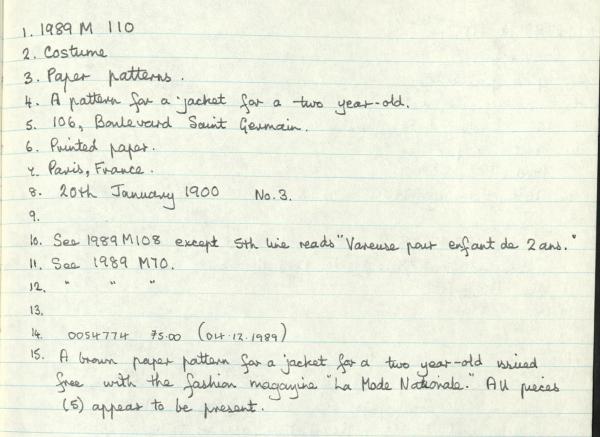 1. 1989 M 110
2. Costume
3. Paper patterns.
4. A pattern for a jacket for a two year-old.
5. 106, Boulevard Saint Germain.
6. Printed paper.
7. Paris, France.
8. 20th January 1900 No. 3.
9.
10. See 1989 M108 except 5th line reads "Vareuse pour enfant de 2 ans."
11. See 1989 M70.
12. " " "
13.
14. 0054774 75.00 (04.12.1989)
15. A brown paper pattern for a jacket for a two year-old issued
free with the fashion magazine "La Mode Nationale." All pieces
(5) appear to be present.